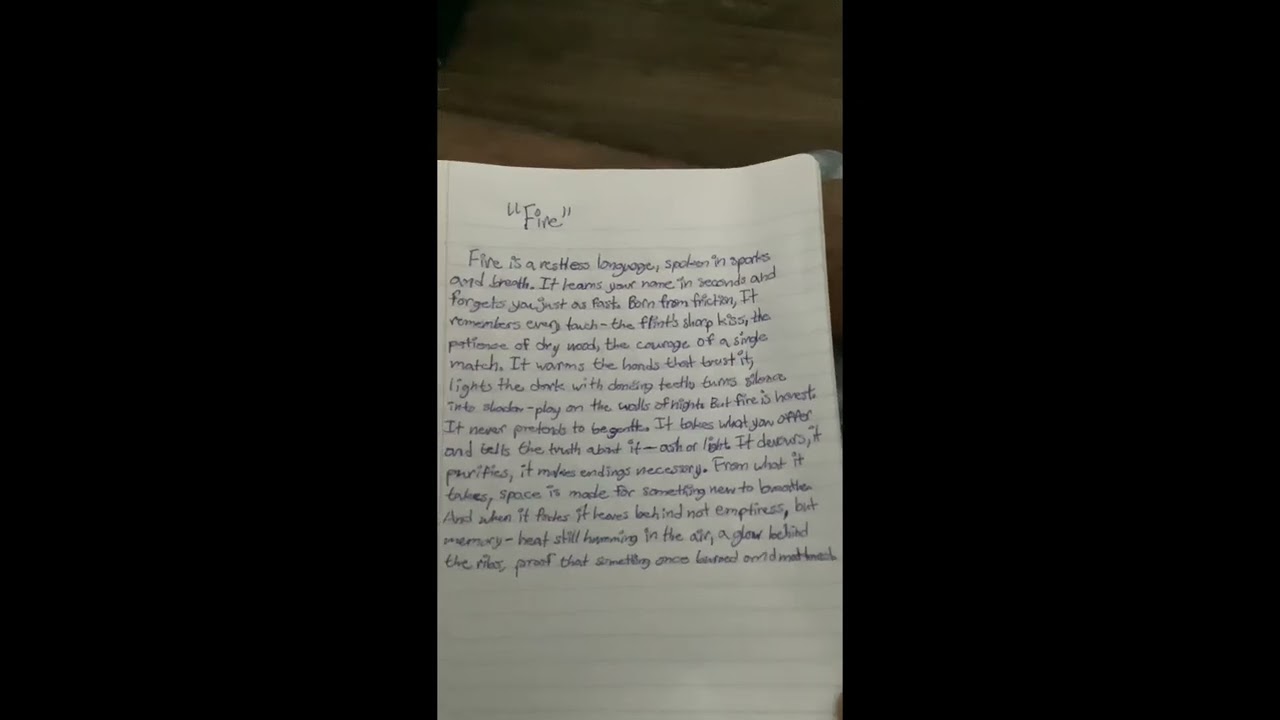 "Fire"
Fire is a restless language, spoken in sparks
and breath. It learns your name in seconds and
forgets you just as fast. Born from friction, It
remembers every touch - the flint's sharp kiss, the
patience of dry wood, the courage of a single
match. It warms the hands that trust it,
lights the dark with dancing teeth, turns silence
into shadow-play on the walls of night. But fire is honest.
It never pretends to be gentle. It takes what you offer
and tells the truth about it - ash or light. It devours, it
purifies, it makes endings necessery. From what it
takes, space is made for something new to breathe.
And when it fades it leaves behind not emptiness, but
memory - heat still humming in the air, a glow behind
the ribs, proof that something once burned and mattered.